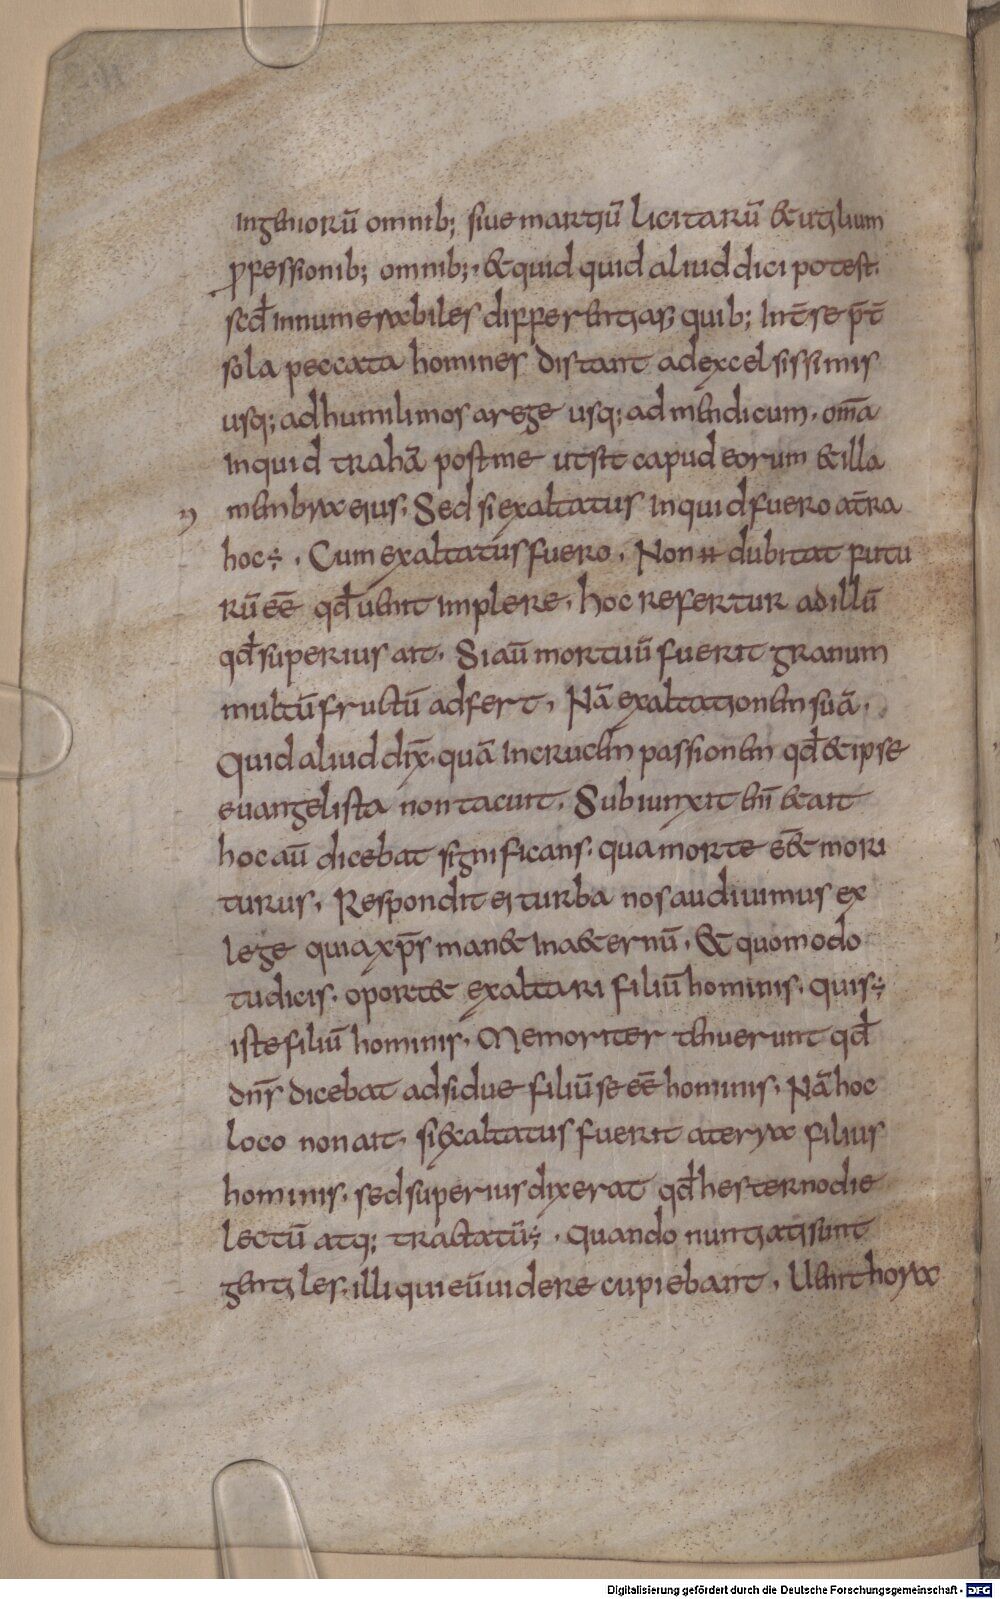 ingeniorū omnib; siue martiū licitarū & utilium
professionib; omnib;, & quid quid aliud dici potest.
scđ innumerabiles differentias quib; int̄ se p̄t
sola peccata homines distant ad excelsissimis
usq; ad humilimos a rege usq; ad mendicum. om̄a
inquid trahā post me ut sit capud eorum & illa
membra eius. Sed si exaltatus inquid fuero at̄ra
hoc ÷. Cum exaltatus fuero. Non H dubitat futu
rū eē qđ uenit implere. hoc refertur ad illū
qđ superius ait. Si aū mortuū fuerit granum
multū fructū adfert, Nā exaltationem suā.
Quid aliud dix̄. quā in crucem passionem qđ & ipse
euangelista non tacuit. Subiunxit en̄ & ait
hoc aū dicebat significans. qua morte e͞& mori
turus, Respondit ei turba nos audiuimus ex
lege quia xp̄s man& in a&ernū. & quomodo
tu dicis. oport& exaltari filiū hominis. quis ÷
iste filiū hominis. Memoriter tenuerunt qđ
dn̄s dicebat adsidue filiū se eē hominis. Nā hoc
loco non ait. si exaltatus fuerit a terra filius
hominis. sed superius dixerat qđ hesterno die
lectū atq; tractatū ÷. quando nuntiati sunt
gentiles. illi qui eū uidere cupiebant, Uenit hora
Digitalisierung gefördert durch die Deutsche Forschungsgemeinschaft - DFG